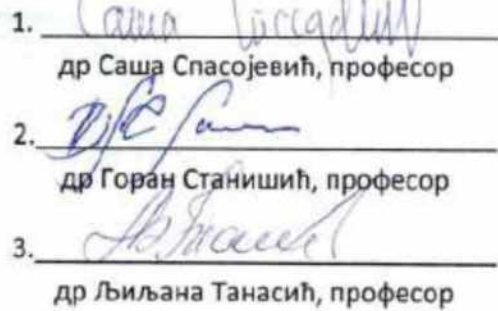 1.
др Саша Спасојевић, професор
2.
др Горан Станишић, професор
3.
др Љиљана Танасић, професор